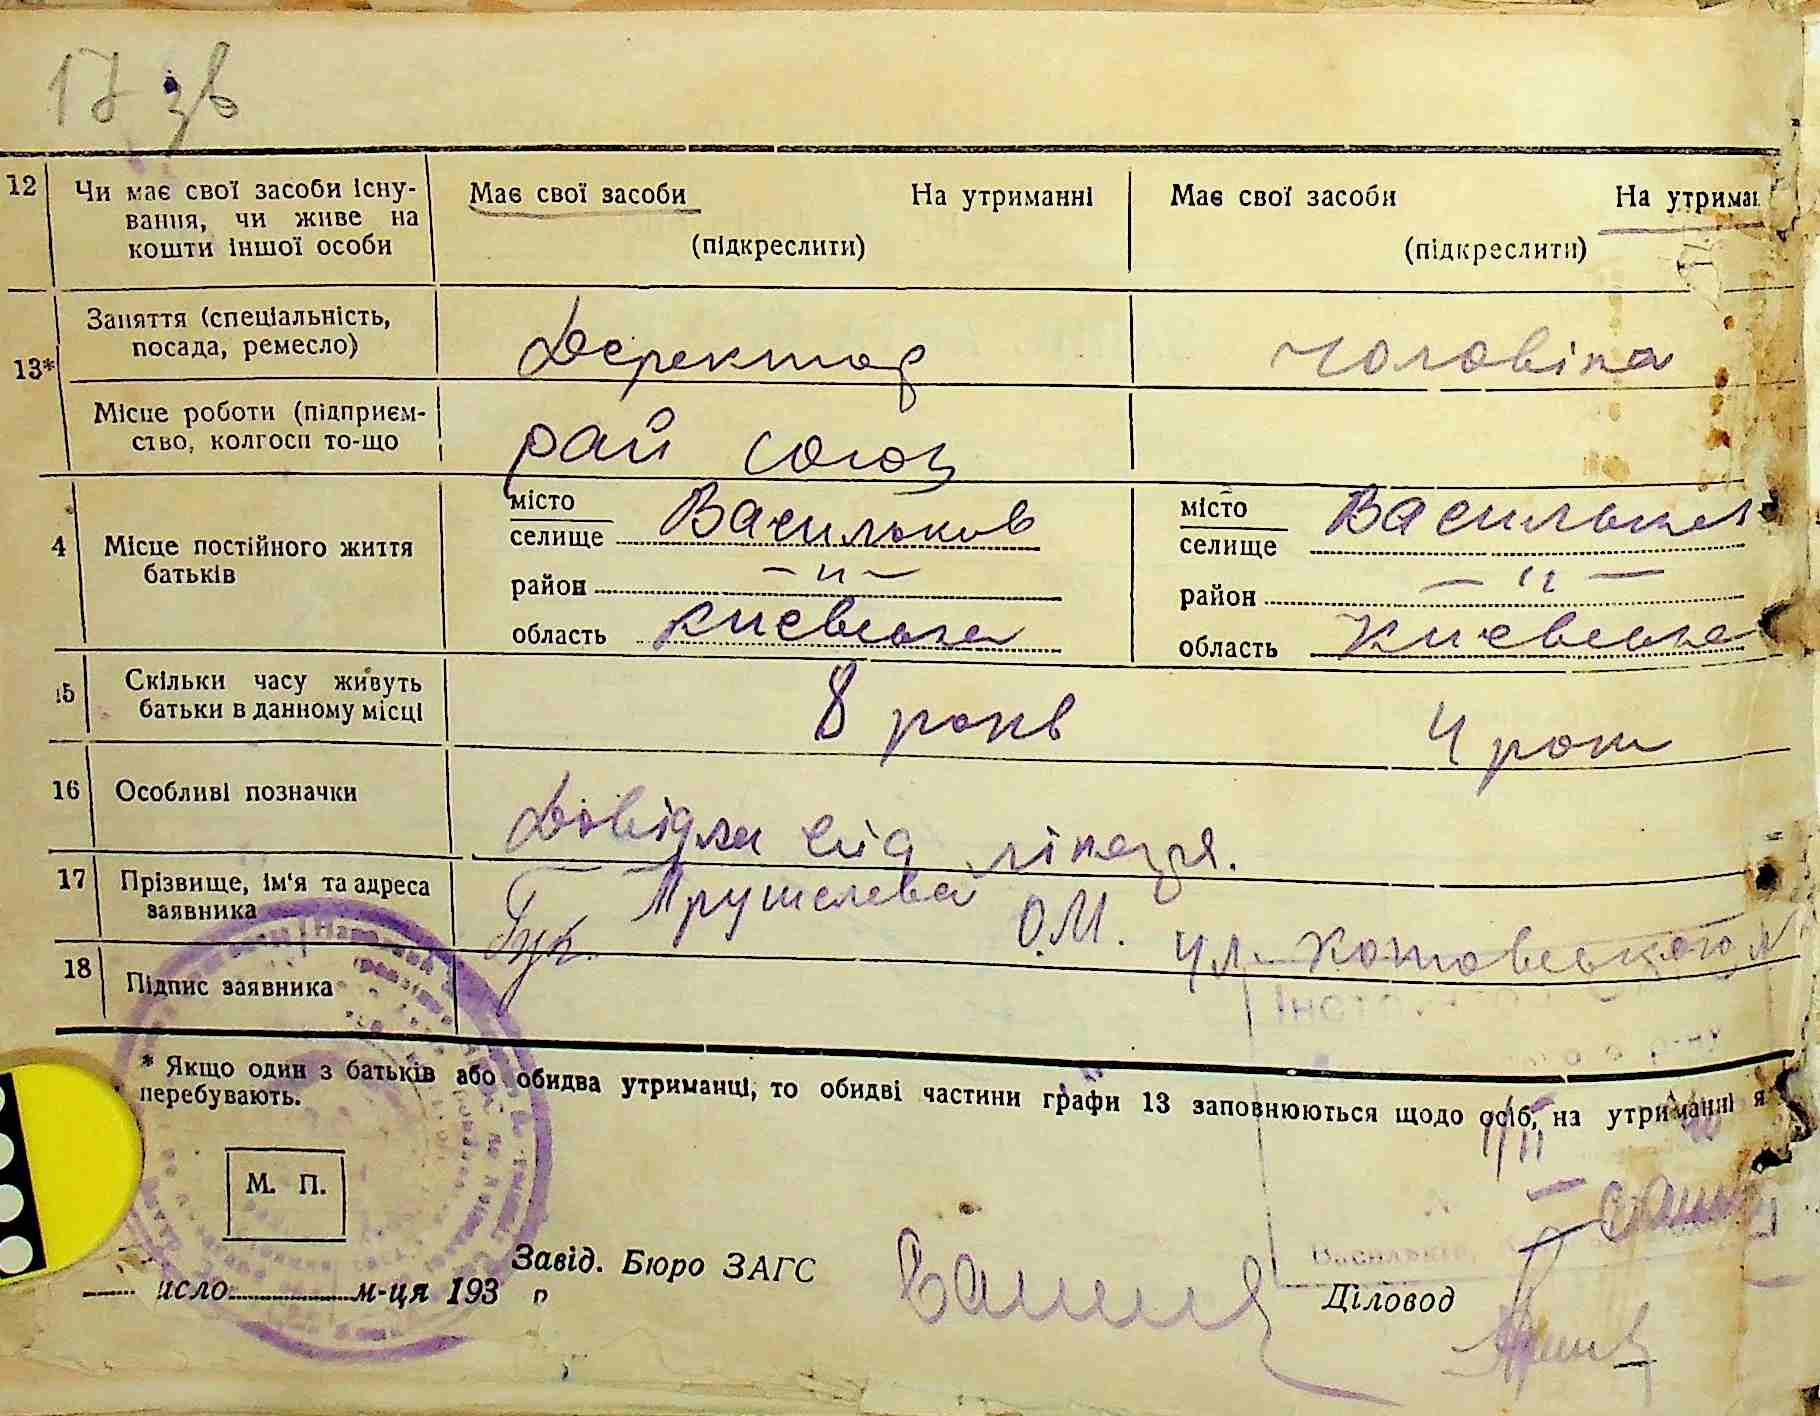 17 зв
12 Чи має свої засоби існу- Має свої засоби На утриманні Має свої засоби На утриман
вання, чи живе на
кошти іншої особи (підкреслити) (підкреслити)
Заняття (спеціальність, Деректор чоловіка
посада, ремесло)
13*
Місце роботи (підприєм- рай союз
ство, колгосп то-що
місто Васильков місто Васильков
селище селище
4 Місце постійного життя
батьків
район -"- район -"-
область Киевська область Киевська
15 Скільки часу живуть 8 років 4 рок
батьки в данному місці
16 Особливі позначки Довідка від лікаря.
17 Прізвище, ім'я та адреса Трушелева О.М. ул. Котовського N
заявника
18 Підпис заявника
* Якщо один з батьків або обидва утриманці, то обидві частини графи 13 заповнюються щодо осіб, на утриманні я
перебувають.
М. П.
Завід. Бюро ЗАГС
исло м-ця 193 р
Діловод